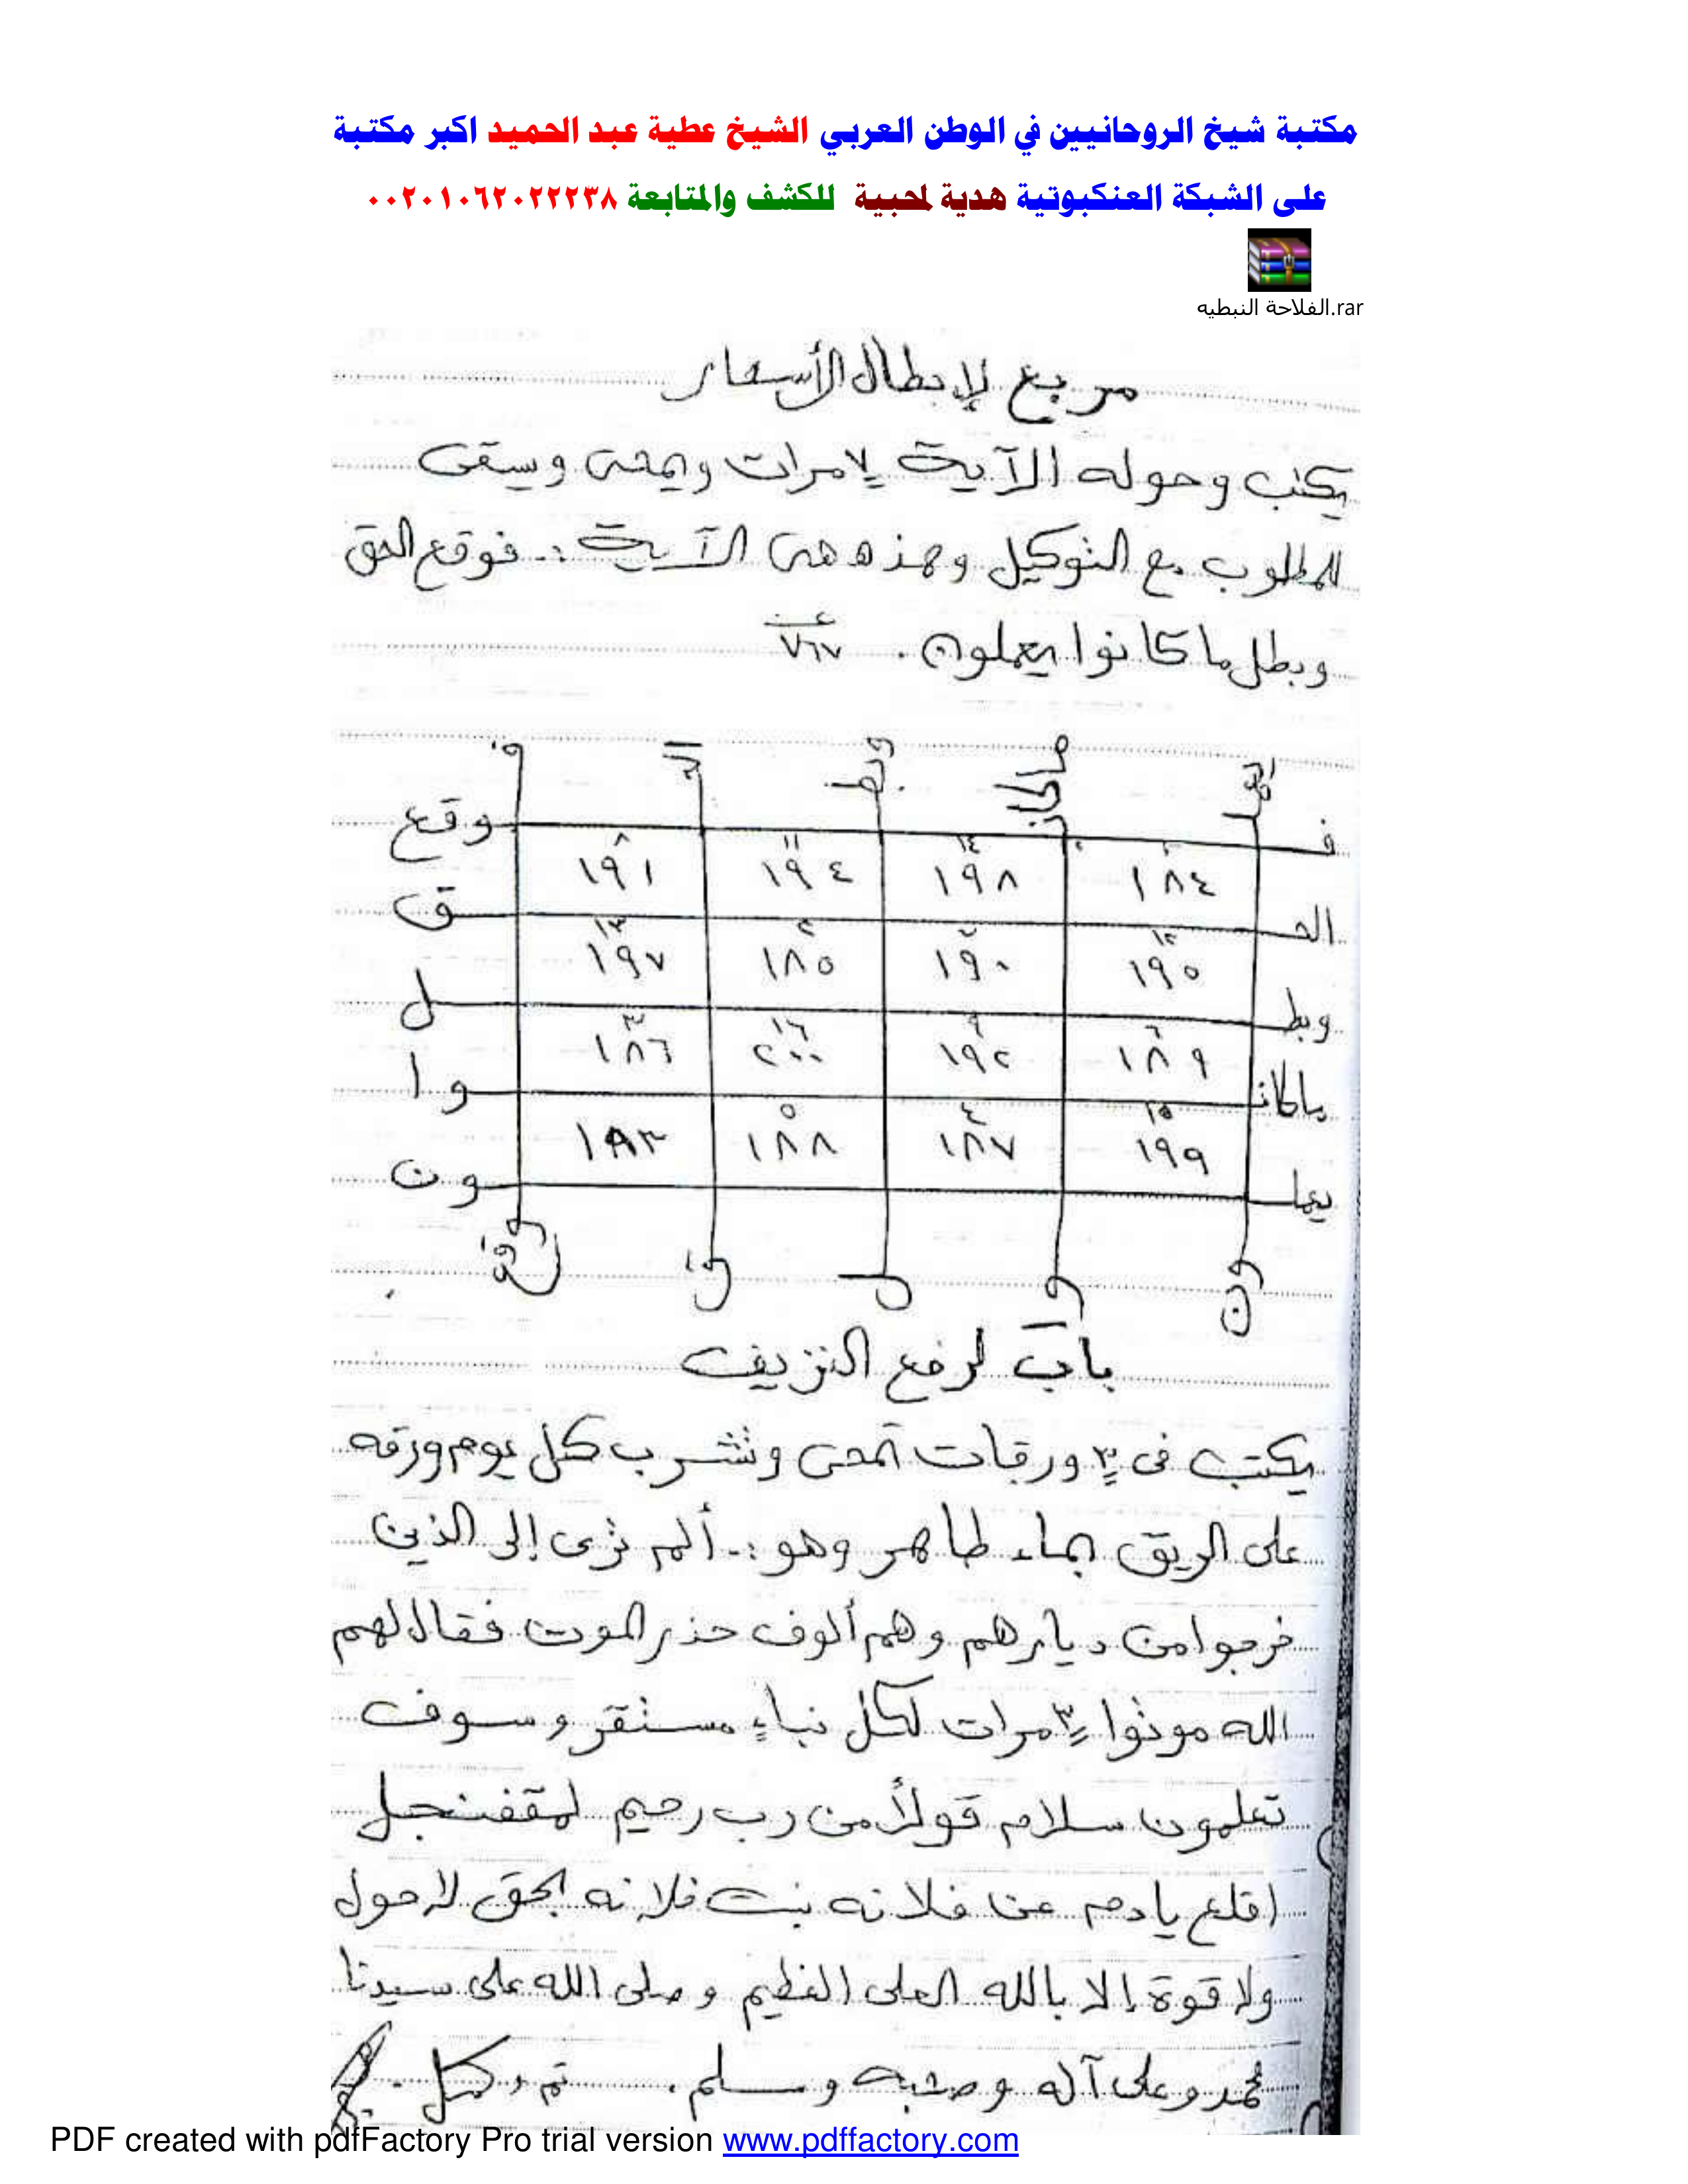 مكتبة شيخ الروحانيين في الوطن العربي الشيخ عطية عبد الحميد اكبر مكتبة
على الشبكة العنكبوتية هدية لمحبية للكشف والمتابعة ٠٠٢٠١٠٦٢٠٢٢٢٣٨
الفلاحة النبطيه.rar
مربع لإبطال الأسحار
يكتب وحوله الآية ٧ مرات ويمحى ويسقى
للمطلوب مع التوكيل وهذه هى الآية :. فوقع الحق
وبطل ما كانوا يعملون . ٧٦٧
ف وقع
٨ ١١ ١٤ ١
١٩١ ١٩٤ ١٩٨ ١٨٤
الحـ ـق
١٣ ٢ ٧ ١٢
١٩٧ ١٨٥ ١٩٠ ١٩٥
وبطـ ـل
٣ ١٦ ٩ ٦
١٨٦ ٢٠٠ ١٩٢ ١٨٩
ماكانـ ـوا
٥ ٤ ١٥
١٩٣ ١٨٨ ١٨٧ ١٩٩
يعملـ ـون
باب لرفع النزيف
يكتب فى ٣ ورقات تمحى وتشرب كل يوم ورقه
على الريق بماء طاهر وهو :. ألم ترى إلى الذين
خرجوا من ديارهم وهم ألوف حذر الموت فقال لهم
الله موتوا ٣ مرات لكل نباءٍ مستقر وسوف
تعلمون سلام قولاً من رب رحيم لمقفنجل
اقلع يا دم عن فلانه بنت فلانه بحق لا حول
ولا قوة إلا بالله العلى العظيم وصلى الله على سيدنا
محمد وعلى آله وصحبه وسلم . تم وكمل .
PDF created with pdfFactory Pro trial version www.pdffactory.com